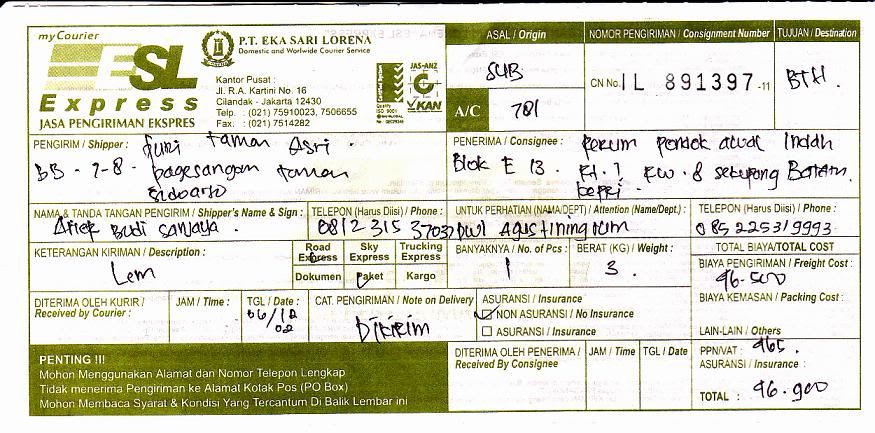 myCourier
ESL
Express
JASA PENGIRIMAN EKSPRES
P.T. EKA SARI LORENA
Domestic and Worlwide Courier Service
Kantor Pusat :
Jl. R.A. Kartini No. 16
Cilandak - Jakarta 12430
Telp. : (021) 75910023, 7506655
Fax. : (021) 7514282
JAS-ANZ
KAN
ASAL / Origin
SUB
A/C
701
NOMOR PENGIRIMAN / Consignment Number
CN No. IL 891397-11
TUJUAN / Destination
BTH
PENGIRIM / Shipper : Puri Taman Asri.
BB - 7-8. pagesangan taman
Sidoarjo
PENERIMA / Consignee : perum pondok Indah
Blok E 13. Rt. 1 RW. 8 Sekupang Batam
kepri.
NAMA & TANDA TANGAN PENGIRIM / Shipper's Name & Sign :
Arief Budi Sanjaya.
TELEPON (Harus Diisi) / Phone :
0812 315 37037
UNTUK PERHATIAN (NAMA/DEPT) / Attention (Name/Dept.) :
Dwi Agustiningrum
TELEPON (Harus Diisi) / Phone :
085225319993
KETERANGAN KIRIMAN / Description :
Lem
Road Express
Sky Express
Trucking Express
Dokumen
Paket
Kargo
BANYAKNYA / No. of Pcs :
1
BERAT (KG) / Weight :
3.
TOTAL BIAYA/TOTAL COST
BIAYA PENGIRIMAN / Freight Cost :
96.500
BIAYA KEMASAN / Packing Cost :
LAIN-LAIN / Others
PPN/VAT : 965.
ASURANSI / Insurance :
TOTAL : 96.900
DITERIMA OLEH KURIR /
Received by Courier :
JAM / Time :
TGL / Date :
06/12
02
CAT. PENGIRIMAN / Note on Delivery
Dikirim
ASURANSI / Insurance
NON ASURANSI / No Insurance
ASURANSI / Insurance
DITERIMA OLEH PENERIMA /
Received By Consignee
JAM / Time
TGL / Date
PENTING !!!
Mohon Menggunakan Alamat dan Nomor Telepon Lengkap
Tidak menerima Pengiriman ke Alamat Kotak Pos (PO Box)
Mohon Membaca Syarat & Kondisi Yang Tercantum Di Balik Lembar ini